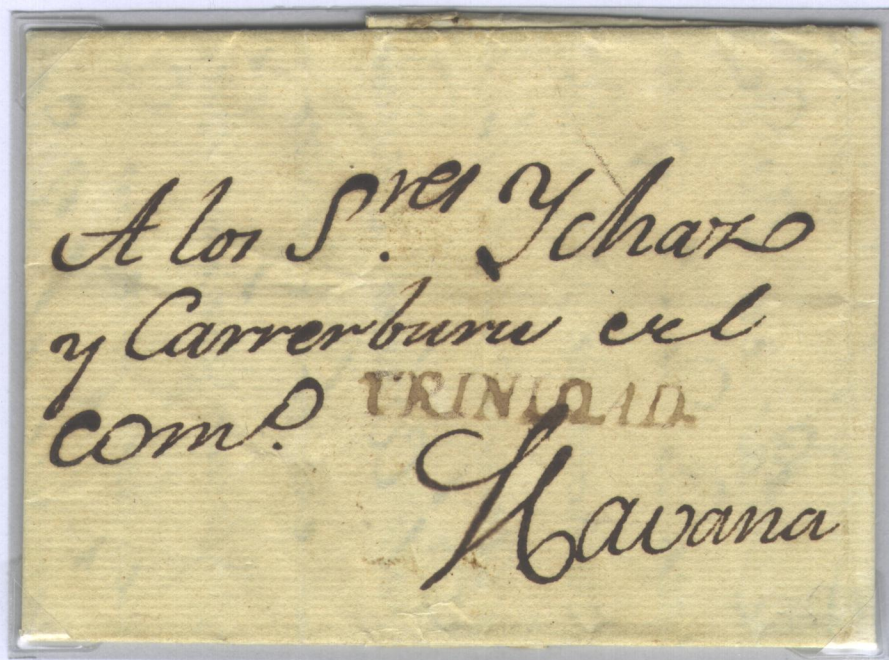 A los S.res Ychazo
y Carrerburu del
com.o
TRINIDAD.
Havana